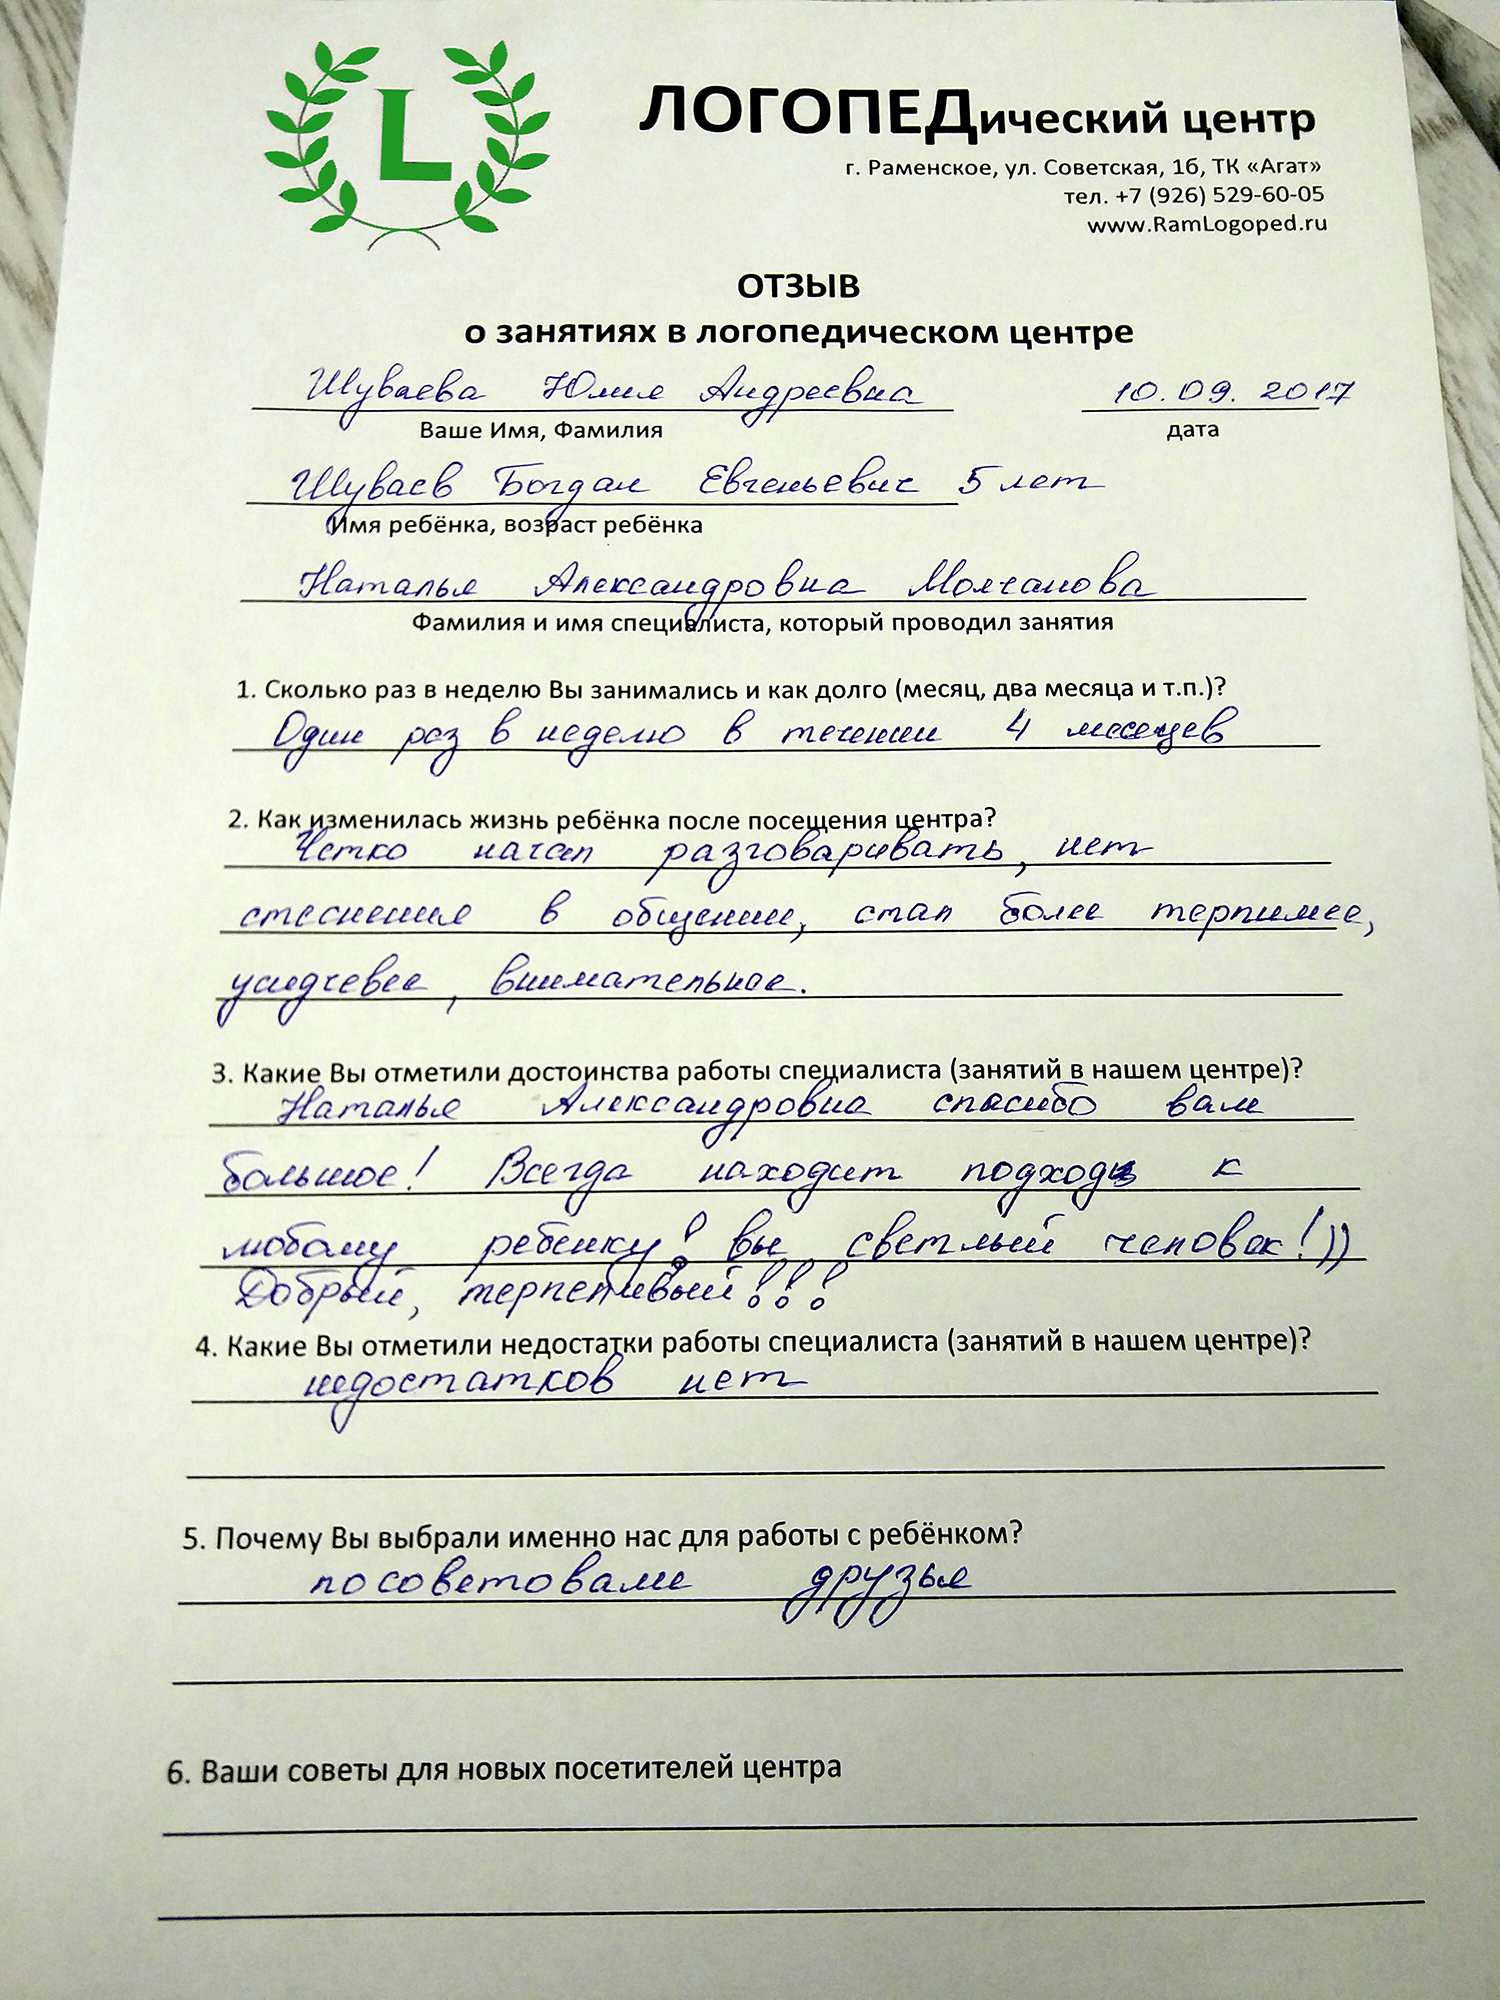 L
ЛОГОПЕДический центр
г. Раменское, ул. Советская, 1б, ТК «Агат»
тел. +7 (926) 529-60-05
www.RamLogoped.ru
ОТЗЫВ
о занятиях в логопедическом центре
Шуваева Юлия Андреевна 10.09.2017
Ваше Имя, Фамилия дата
Шуваев Богдан Евгеньевич 5 лет
Имя ребёнка, возраст ребёнка
Наталья Александровна Молчанова
Фамилия и имя специалиста, который проводил занятия
1. Сколько раз в неделю Вы занимались и как долго (месяц, два месяца и т.п.)?
Один раз в неделю в течении 4 месяцев
2. Как изменилась жизнь ребёнка после посещения центра?
Четко начал разговаривать, нет
стеснения в общении, стал более терпимее,
усидчевее, внимательнее.
3. Какие Вы отметили достоинства работы специалиста (занятий в нашем центре)?
Наталья Александровна спасибо вам
большое! Всегда находит подход к
любому ребенку! вы светлый человек!))
Добрый, терпеливый!!!
4. Какие Вы отметили недостатки работы специалиста (занятий в нашем центре)?
недостатков нет
5. Почему Вы выбрали именно нас для работы с ребёнком?
посоветовали друзья
6. Ваши советы для новых посетителей центра